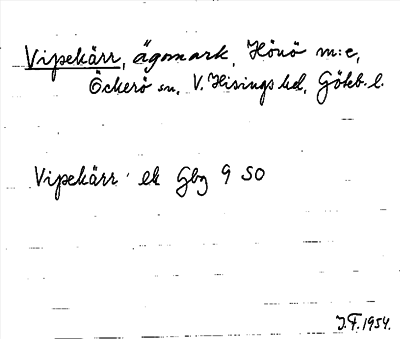 Vipekärr, ägomark, Hönö m:e,
Öckerö sn, V. Hisings hd, Göteb. l.
Vipekärr ek Gbg 9 SO
J.F. 1954.